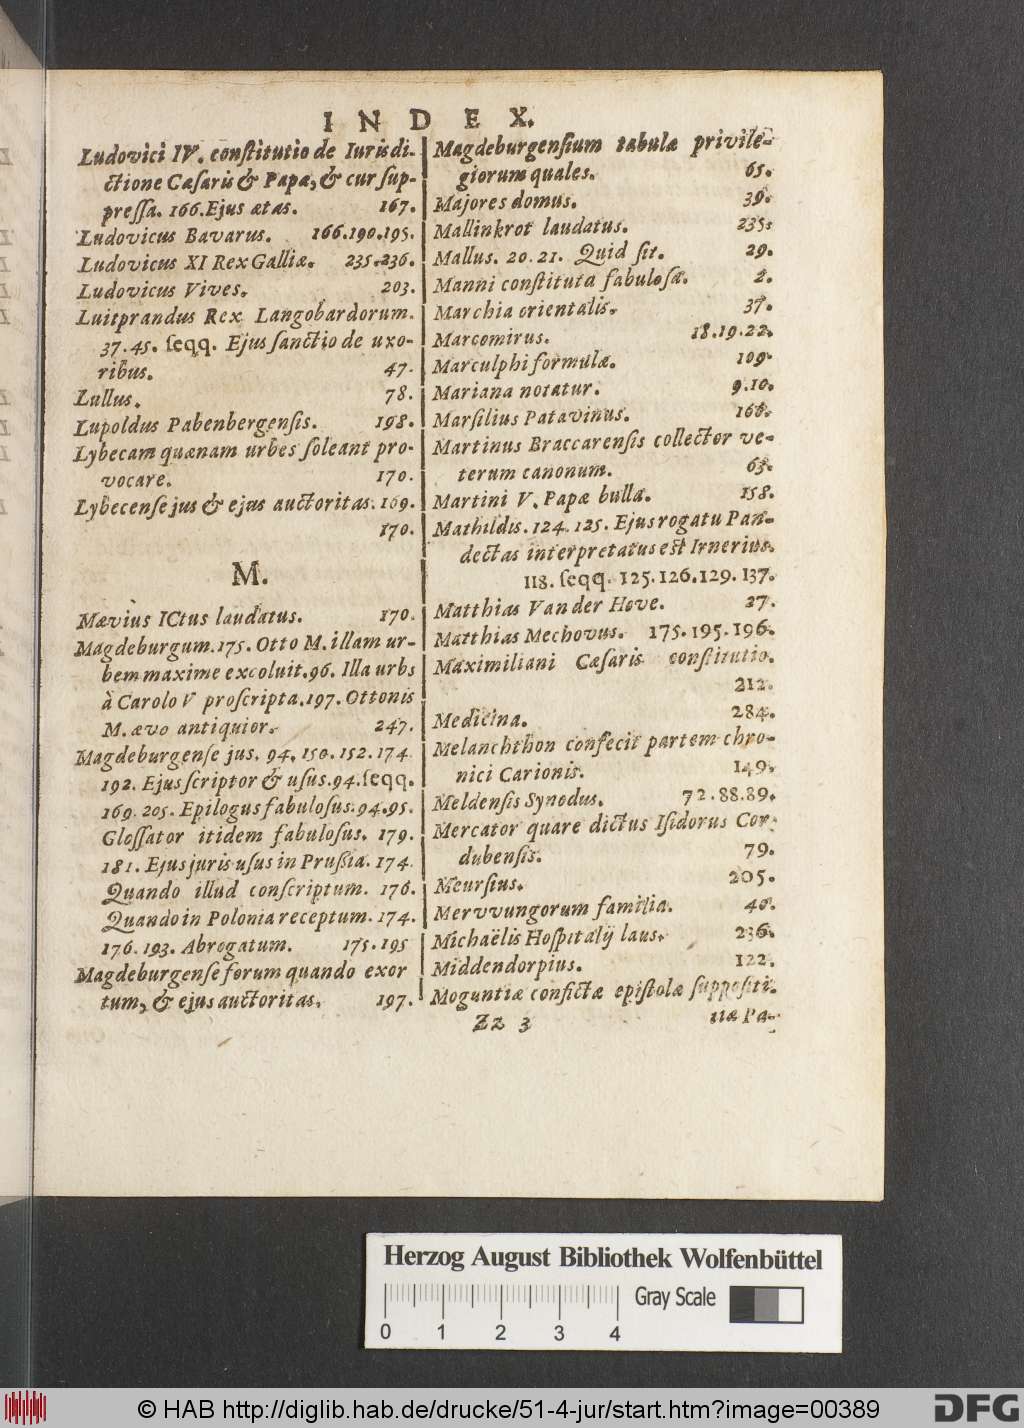 INDEX.
Ludovici IV. constitutio de Iurisdi-
ctione Cæsaris & Papæ, & cur sup-
pressa. 166. Ejus ætas. 167.
Ludovicus Bavarus. 166.190.195.
Ludovicus XI Rex Galliæ. 235.236.
Ludovicus Vives. 203.
Luitprandus Rex Langobardorum.
37.45. seqq. Ejus sanctio de uxo-
ribus. 47.
Lullus. 78.
Lupoldus Pabenbergensis. 198.
Lybecam quænam urbes soleant pro-
vocare. 170.
Lybecense jus & ejus auctoritas. 169.
170.
M.
Mævius ICtus laudatus. 170.
Magdeburgum. 175. Otto M. illam ur-
bem maxime excoluit. 96. Illa urbs
à Carolo V proscripta. 197. Ottonis
M. ævo antiquior. 247.
Magdeburgense jus. 94. 150. 152. 174
192. Ejus scriptor & usus. 94. seqq.
169. 205. Epilogus fabulosus. 94.95.
Glossator itidem fabulosus. 179.
181. Ejus juris usus in Prußia. 174
Quando illud conscriptum. 176.
Quando in Polonia receptum. 174.
176. 193. Abrogatum. 175.195
Magdeburgense forum quando exor
tum, & ejus auctoritas. 197.
Magdeburgensium tabulæ privile-
giorum quales. 65.
Majores domus. 39.
Mallinkrot laudatus. 235.
Mallus. 20. 21. Quid sit. 29.
Manni constituta fabulosa. 2.
Marchia orientalis. 37.
Marcomirus. 18.19.22.
Marculphi formulæ. 109.
Mariana notatur. 9.10.
Marsilius Patavinus. 166.
Martinus Braccarensis collector ve-
terum canonum. 63.
Martini V. Papæ bulla. 158.
Mathildis. 124. 125. Ejus rogatu Pan-
dectas interpretatus est Irnerius.
118. seqq. 125.126.129.137.
Matthias Van der Hove. 27.
Matthias Mechovus. 175.195.196.
Maximiliani Cæsaris constitutio.
212.
Medicina. 284.
Melanchthon confecit partem chro-
nici Carionis. 149.
Meldensis Synodus. 72.88.89.
Mercator quare dictus Isidorus Cor-
dubensis. 79.
Meursius. 205.
Mervvungorum familia. 40.
Michaëlis Hospitalij laus. 236.
Middendorpius. 122.
Moguntiæ confictæ epistolæ supposití-
Zz 3 tiæ Pa-
Herzog August Bibliothek Wolfenbüttel
Gray Scale
0 1 2 3 4
© HAB http://diglib.hab.de/drucke/51-4-jur/start.htm?image=00389
DFG